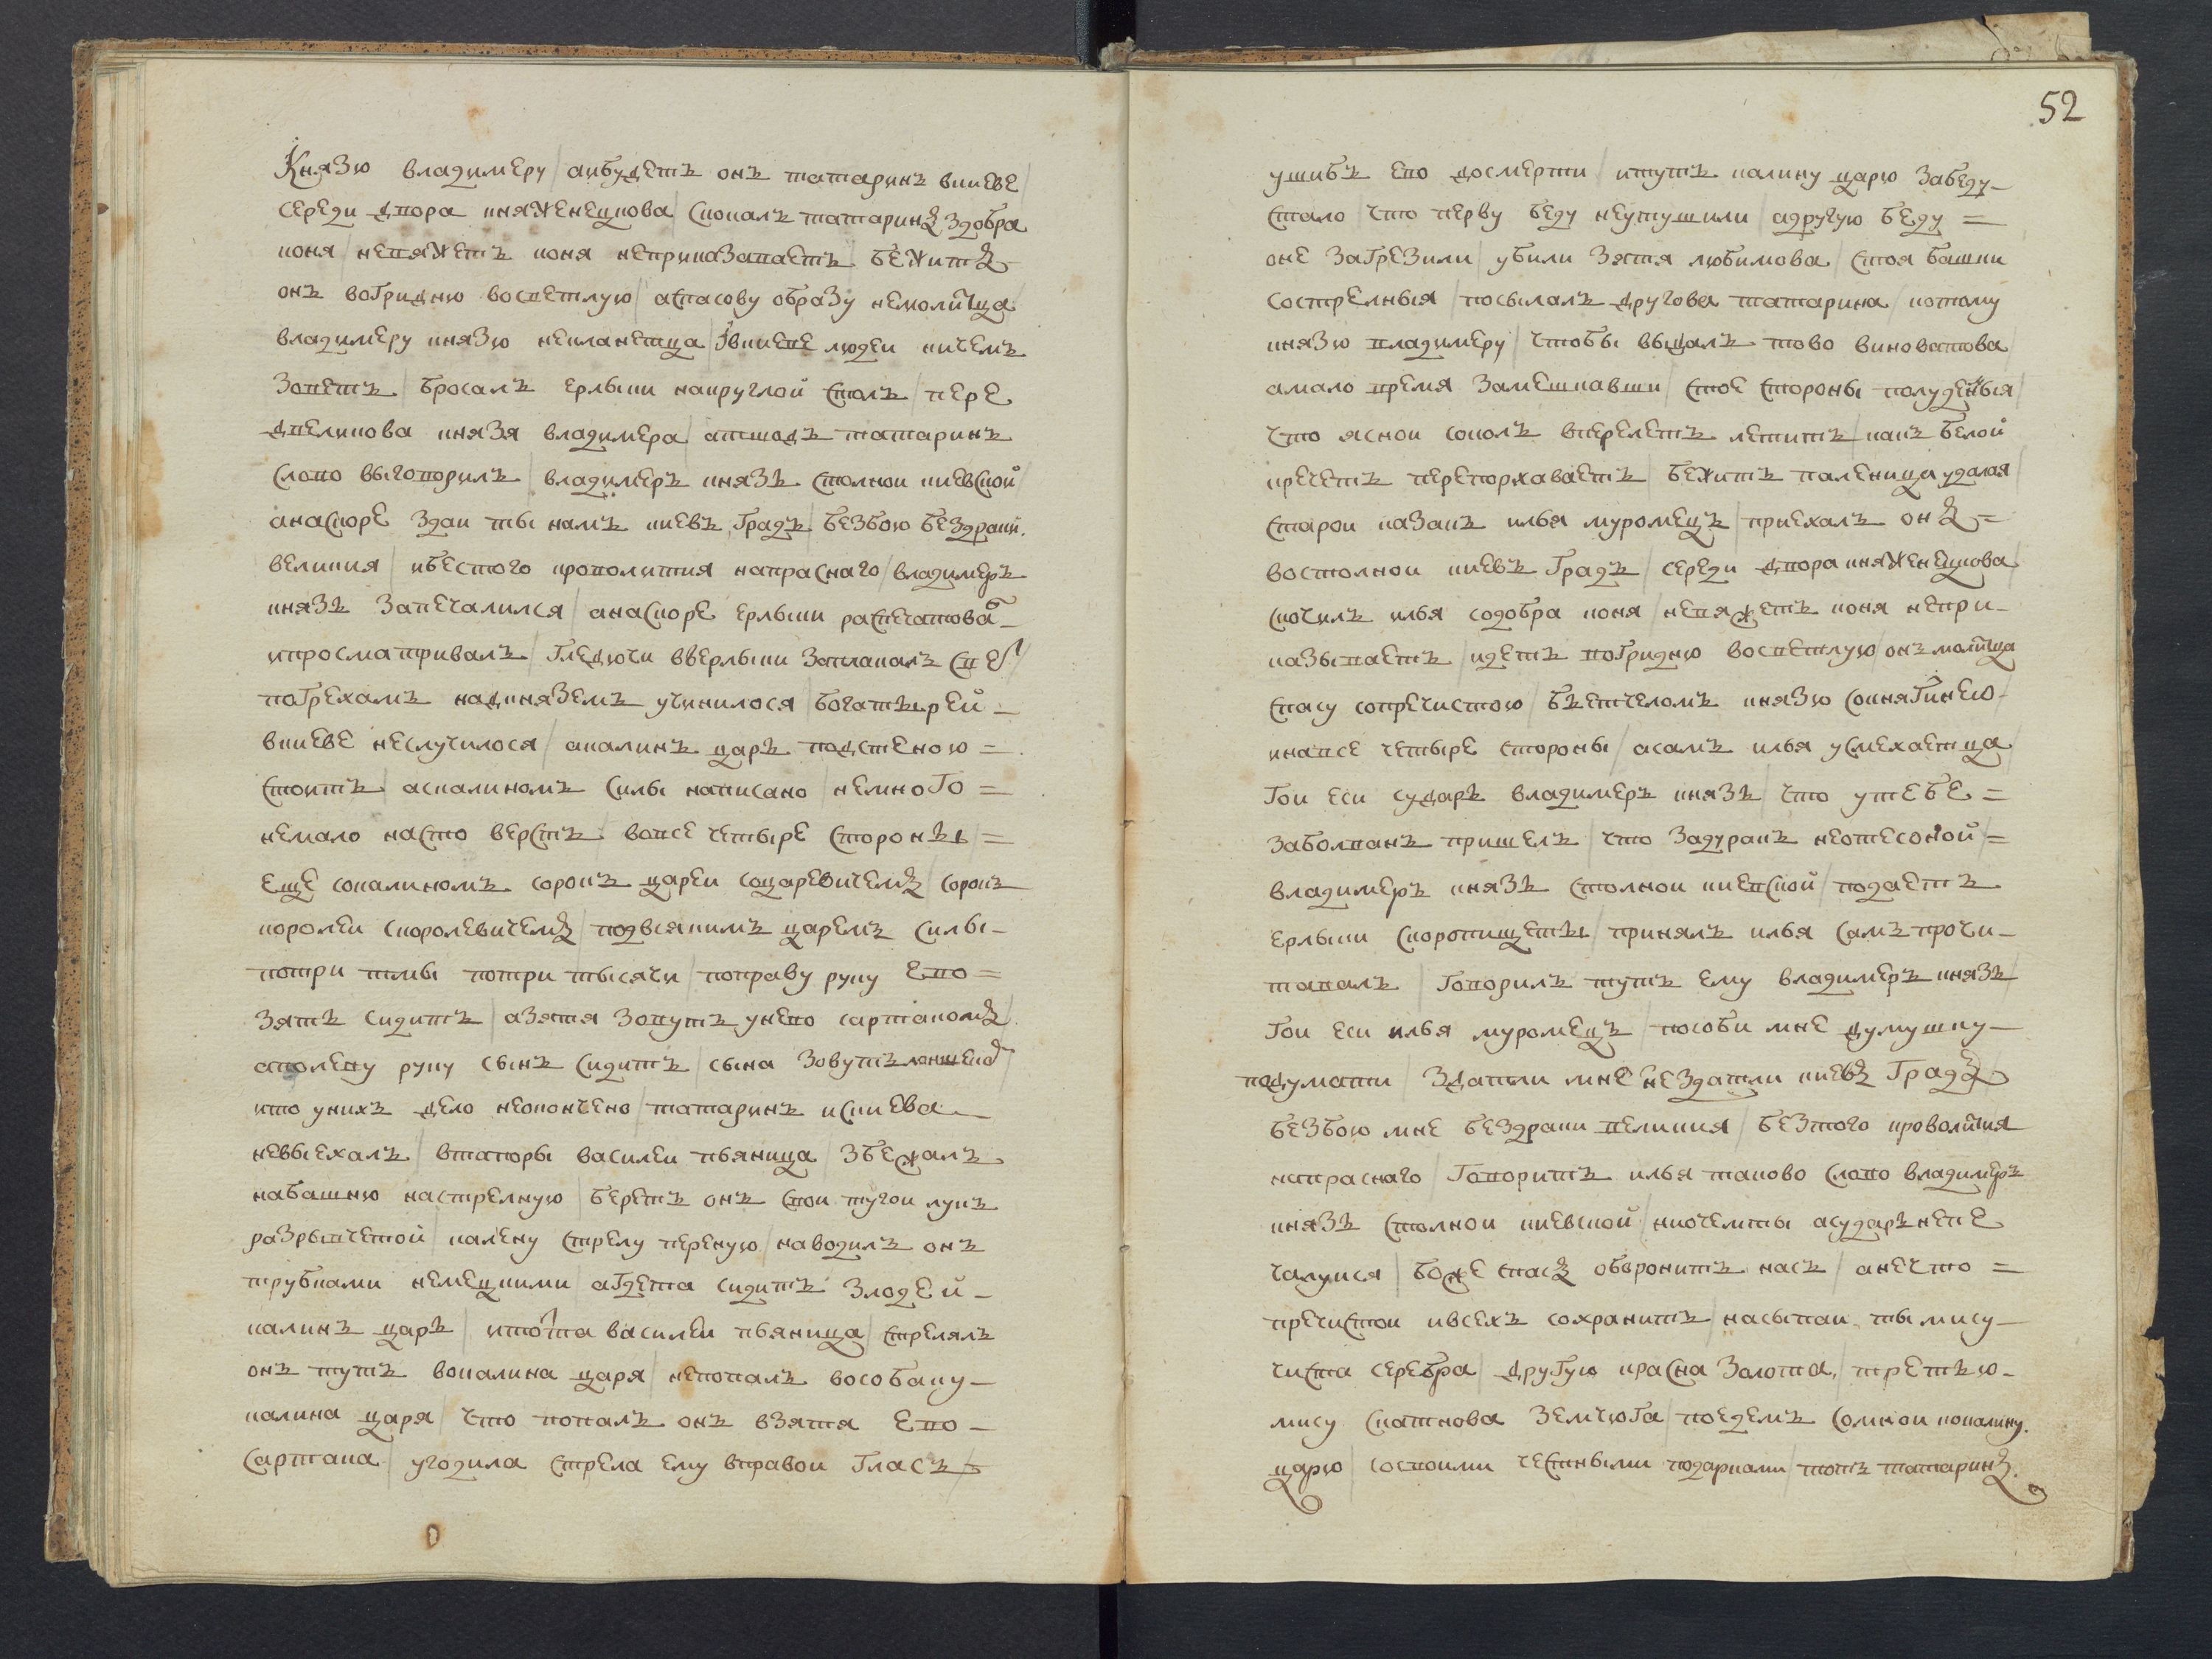 Князю владимеру / аибудетъ онъ татаринъ вкиеве /
середи двора княженецкова / скокалъ татаринъ здобра
коня / невяжетъ коня неприказаваетъ / бежитъ
онъ вогридню восветлую / аспасову образу немолитца /
владимеру князю некланетца / ивкиеве людеи ничемъ
зоветъ / бросалъ ерлыки накруглой столъ / пере
двеликова князя владимера / атшодъ татаринъ
слово выговорилъ / владимеръ князь столнои киевской /
анаскоре здаи ты намъ киевъ градъ / безбою бездраки
великия / ибестого кроволития напраснаго / владимеръ
князь запечалился / анаскоре ерлыки распечатова
ипросматривалъ / гледючи вверлыки заплакалъ свет /
погрехамъ надкняземъ учинилося / богатырей –
вкиеве неслучилося / акалинъ царь подстеною =
стоитъ / аскалиномъ силы написано / немного =
немало насто верстъ / вовсе четыре стороны / =
еще сокалиномъ сорокъ цареи соцаревичемъ / сорокъ
королеи скоролевичемъ / подвсякимъ царемъ силы –
потри тмы потри тысячи / поправу руку ево =
зять сидитъ / азятя зовутъ унево сартакомъ /
аполеву руку сынъ сидитъ / сына зовутъ лоншеко
ито унихъ дело неокончено / татаринъ искиева
невыехалъ / втапоры василеи пьяница / збежалъ
набашню настрелную / беретъ онъ свои тугои лукъ
разрывчетой / калену стрелу переную / наводилъ онъ
трубками немецкими / агдета сидитъ злодей –
калинъ царь / итота василеи пьяница / стрелялъ
онъ тутъ вокалина царя / непопалъ вособаку –
калина царя / что попалъ онъ взятя ево –
сартака / угодила стрела ему вправои гласъ /
52
ушибъ ево досмерти / итутъ калину царю забеду –
стало / что перву беду неутушили / адругую беду =
оне загрезили / убили зятя любимова / стоя башни
сострелныя / посылалъ другова татарина / котому
князю владимеру / чтобы выдалъ тово виноватова
амало время замешкавши / стое стороны полуденныя /
что яснои соколъ вперелетъ летитъ / какъ белой
кречетъ перепорхаваетъ / бежитъ паленица удалая /
старои казакъ илья муромецъ / приехалъ онъ =
востолнои киевъ градъ / середи двора княженецкова /
скочилъ илья содобра коня / невяжетъ коня непри –
казываетъ / идетъ вогридню восветлую / онъ молитца
спасу сопречистою / бьетчеломъ князю сокнягинею –
инавсе четыре стороны / асамъ илья усмехаетца /
гои еси сударь владимеръ князь / что утебе =
заболванъ пришелъ / что задуракъ неотесоной / =
владимеръ князь столнои киевской / подаетъ
ерлыки скоропищеты / принялъ илья самъ прочи –
тавалъ / говорилъ тутъ ему владимеръ князь /
гои еси илья муромецъ / пособи мне думушку –
подумати / здатьли мне нездатьли киевъ градъ
безбою мне бездраки великия / безтого кроволития
напраснаго / говоритъ илья таково слово владимеръ
князь столнои киевской / ниочемты асударь непе
чалуися / боже спасъ оборонитъ насъ / анечто =
пречистои ивсехъ сохранитъ / насыпаи ты мису –
чиста серебра / другую красна золота / третью –
мису скатнова земчюга / поедемъ сомнои кокалину
царю / сосвоими честными подарками / тотъ татаринъ